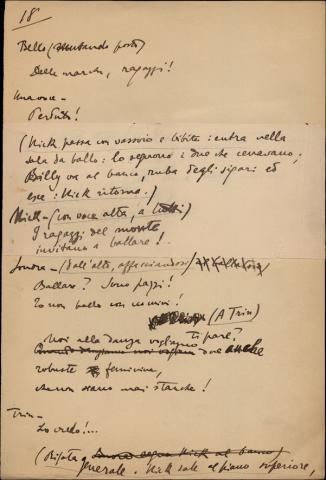 18
Bello (mutando posto)
Delle marche, ragazzi!
Una voce –
Perduto!
(Nick passa con vassoio e bibite: entra nella
sala da ballo: lo seguono i due che cenavano;
Billy va al banco, ruba degli sigari ed
esce: Nick ritorna.)
Nick – (con voce alta, a tutti)
I ragazzi del monte
invitano a ballare!
Sonora – (dall'alto, affacciandosi)
Ballare? Sono pazzi!
Io non ballo con uomini!
(A Trin)
ti pare?
Noi alla danza vogliamo due anche
robuste femminine,
che non siano mai stanche!
Trin –
Lo credo!...
(Risata
generale. Nick sale al piano superiore,